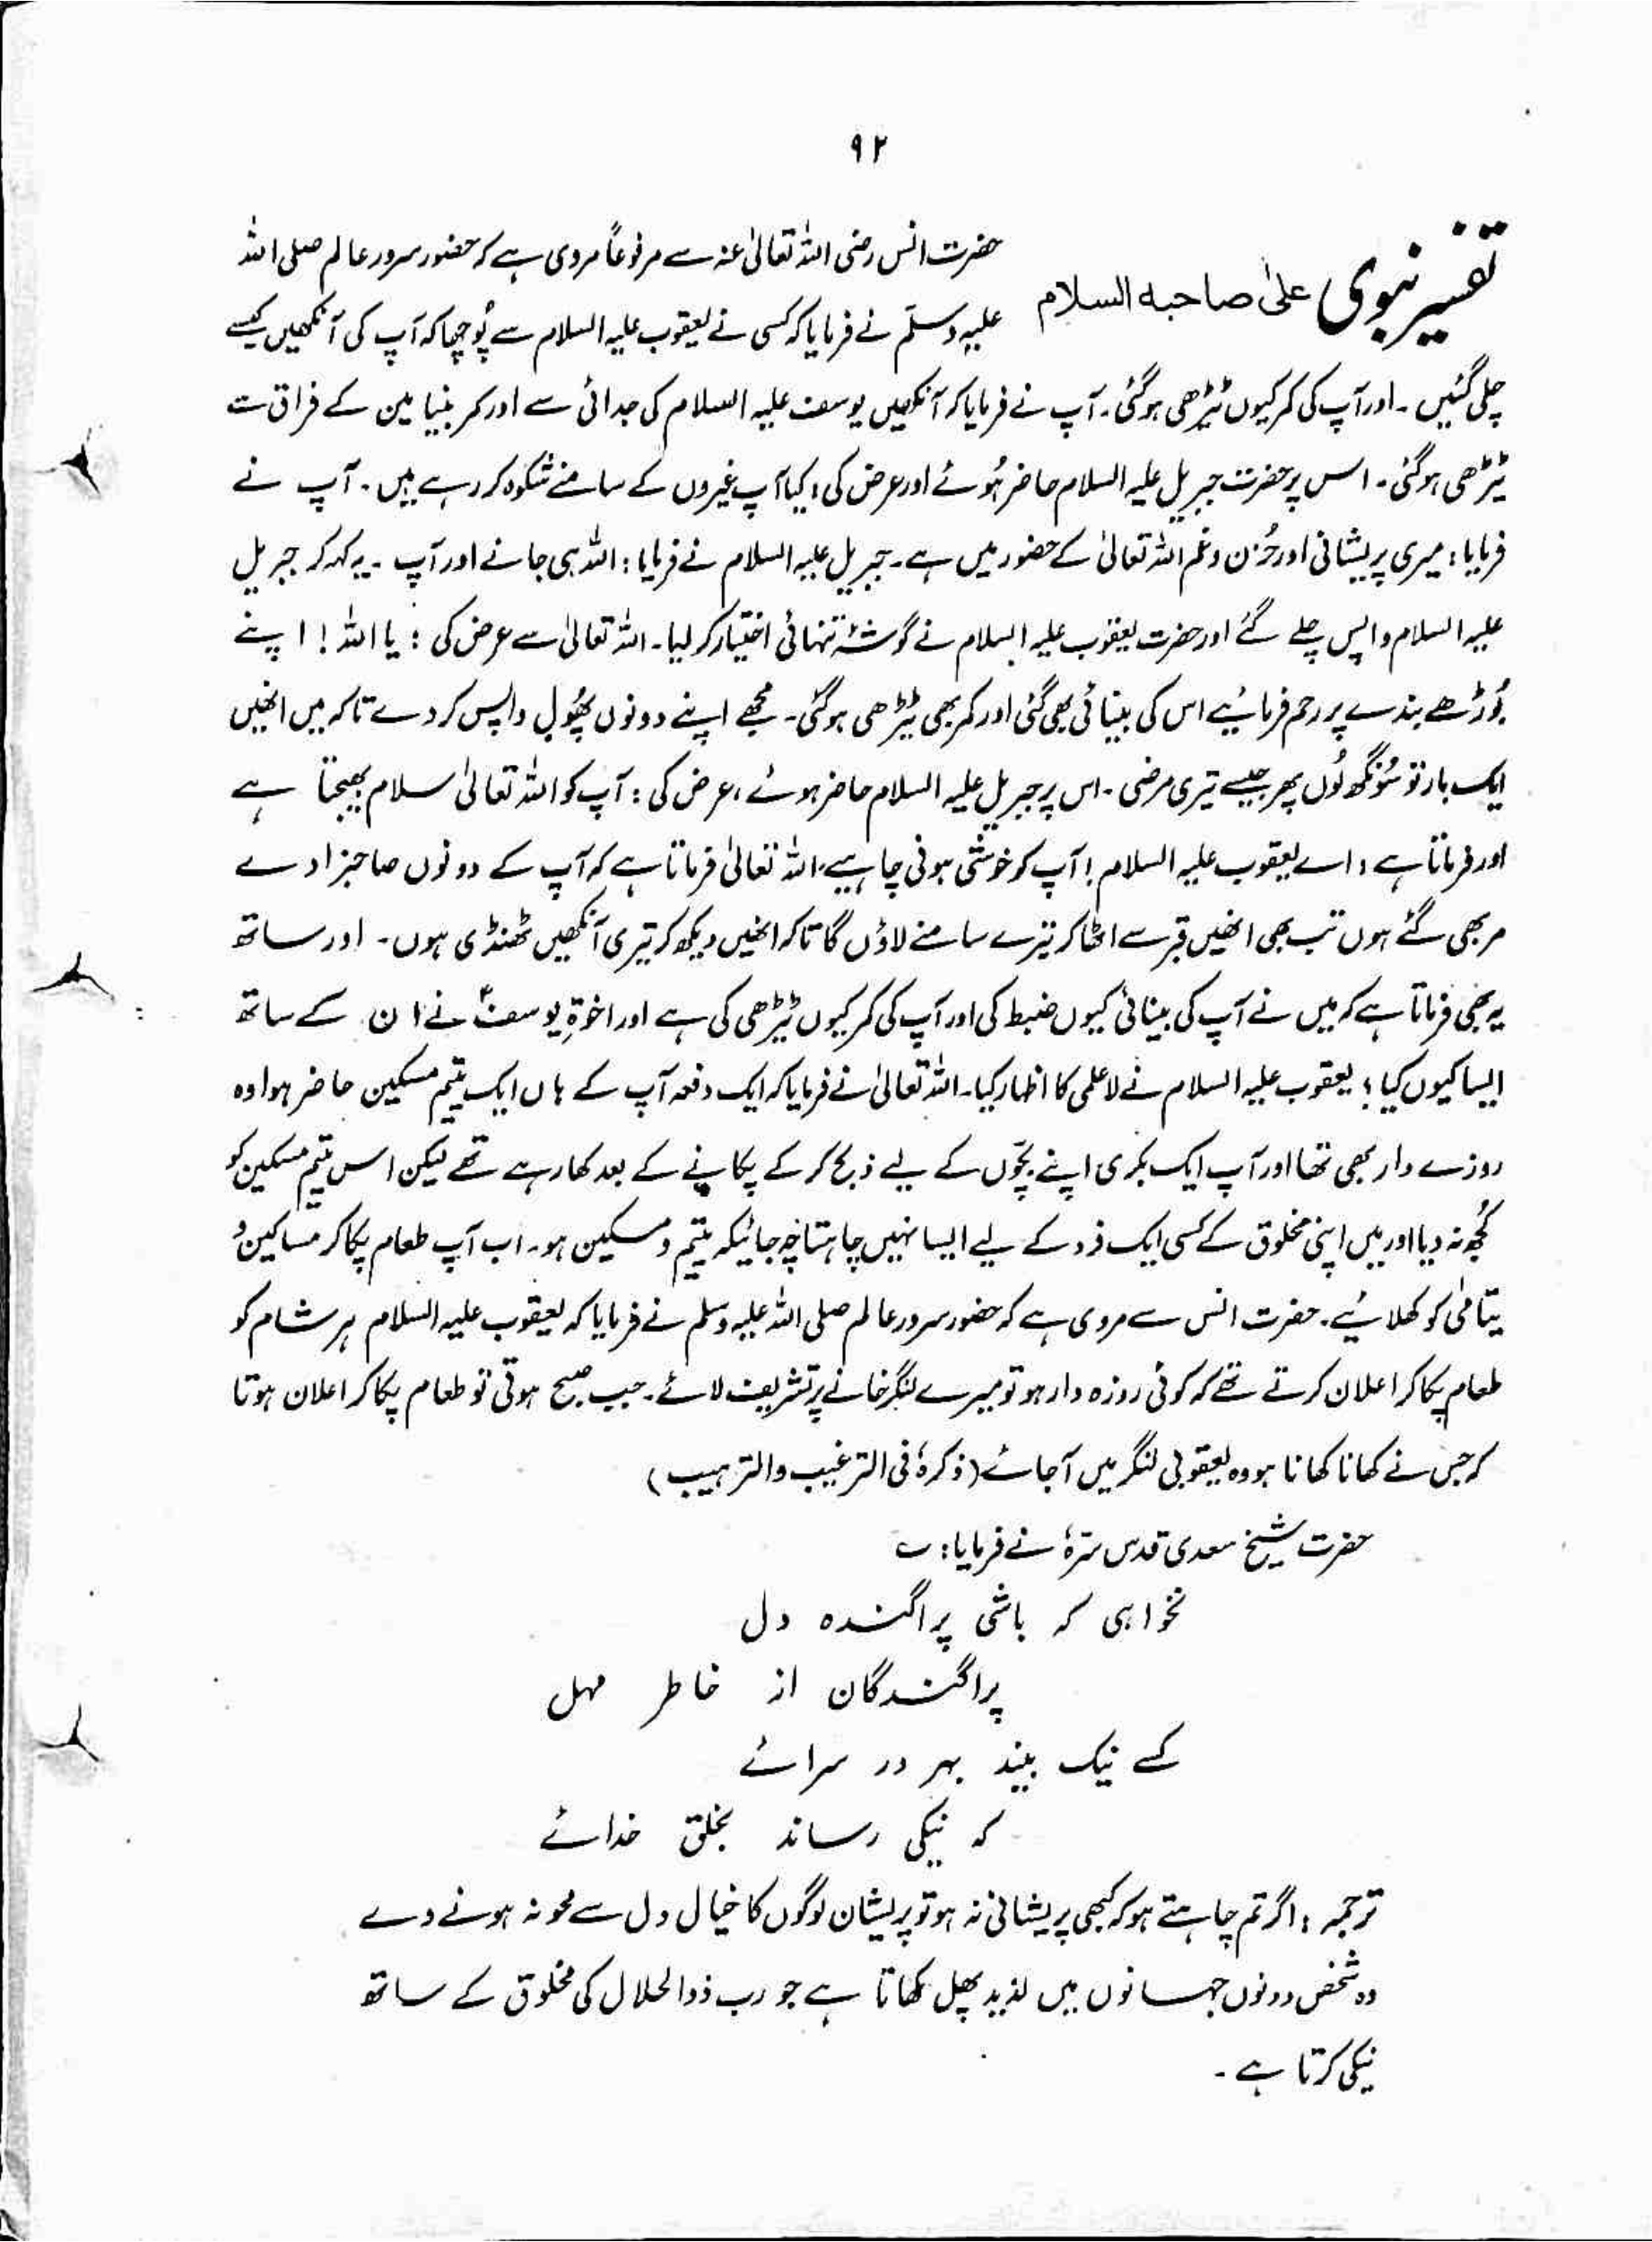 ۹۲
تفسیر نبوی علیٰ صاحبہ السلام
حضرت انس رضی اللہ تعالیٰ عنہ سے مرفوعاً مروی ہے کہ حضور سرور عالم صلی اللہ
علیہ وسلّم نے فرمایا کہ کسی نے یعقوب علیہ السلام سے پُوچھا کہ آپ کی آنکھیں کیسے
چلی گئیں ۔ اور آپ کی کمر کیوں ٹیڑھی ہوگئی۔ آپ نے فرمایا کہ آنکھیں یوسف علیہ السلام کی جدائی سے اور کمر بنیامین کے فراق سے
ٹیڑھی ہوگئی۔ اس پر حضرت جبریل علیہ السلام حاضر ہُوئے اور عرض کی: کیا آپ غیروں کے سامنے شکوہ کر رہے ہیں۔ آپ نے
فرمایا: میری پریشانی اور حُزن وغم اللہ تعالیٰ کے حضور میں ہے۔ جبریل علیہ السلام نے فرمایا: اللہ ہی جانے اور آپ ۔ یہ کہہ کر جبریل
علیہ السلام واپس چلے گئے اور حضرت یعقوب علیہ السلام نے گوشۂ تنہائی اختیار کر لیا۔ اللہ تعالیٰ سے عرض کی : یا اللہ ! اپنے
بُوڑھے بندے پر رحم فرمائیے اس کی بینائی بھی گئی اور کمر بھی ٹیڑھی ہوگئی۔ مجھے اپنے دونوں پھُول واپس کر دے تاکہ میں انھیں
ایک بار تو سُونگھ لُوں پھر جیسے تیری مرضی ۔ اس پر جبریل علیہ السلام حاضر ہوئے، عرض کی : آپ کو اللہ تعالیٰ سلام بھیجتا ہے
اور فرماتا ہے : اے یعقوب علیہ السلام ! آپ کو خوشی ہونی چاہیے، اللہ تعالیٰ فرماتا ہے کہ آپ کے دونوں صاحبزادے
مر بھی گئے ہوں تب بھی انھیں قبر سے اٹھا کر تیرے سامنے لاؤں گا تاکہ انھیں دیکھ کر تیری آنکھیں ٹھنڈی ہوں۔ اور ساتھ
یہ بھی فرماتا ہے کہ میں نے آپ کی بینائی کیوں ضبط کی اور آپ کی کمر کیوں ٹیڑھی کی ہے اور اخوۃِ یوسفؑ نے ان کے ساتھ
ایسا کیوں کیا؛ یعقوب علیہ السلام نے لاعلمی کا اظہار کیا۔ اللہ تعالیٰ نے فرمایا کہ ایک دفعہ آپ کے ہاں ایک یتیم مسکین حاضر ہوا وہ
روزے دار بھی تھا اور آپ ایک بکری اپنے بچّوں کے لیے ذبح کر کے پکانے کے بعد کھا رہے تھے لیکن اس یتیم مسکین کو
کُچھ نہ دیا اور میں اپنی مخلوق کے کسی ایک فرد کے لیے ایسا نہیں چاہتا چہ جائیکہ یتیم و مسکین ہو۔ اب آپ طعام پکا کر مساکین و
یتامٰی کو کھلائیے۔ حضرت انس سے مروی ہے کہ حضور سرور عالم صلی اللہ علیہ وسلم نے فرمایا کہ یعقوب علیہ السلام ہر شام کو
طعام پکا کر اعلان کرتے تھے کہ کوئی روزہ دار ہو تو میرے لنگر خانے پر تشریف لائے۔ جب صبح ہوتی تو طعام پکا کر اعلان ہوتا
کہ جس نے کھانا کھانا ہو وہ یعقوبی لنگر میں آجائے (ذکرہٗ فی الترغیب والترہیب)
حضرت شیخ سعدی قدس سرّہٗ نے فرمایا : ؎
نخواہی کہ باشی پراگندہ دل
پراگندگان از خاطر مہل
کسے نیک بیند بہر در سرائے
کہ نیکی رساند بخلق خدائے
ترجمہ : اگر تم چاہتے ہو کہ کبھی پریشانی نہ ہو تو پریشان لوگوں کا خیال دل سے محو نہ ہونے دے ۔
وہ شخص دونوں جہانوں میں لذیذ پھل کھاتا ہے جو رب ذوالجلال کی مخلوق کے ساتھ
نیکی کرتا ہے ۔